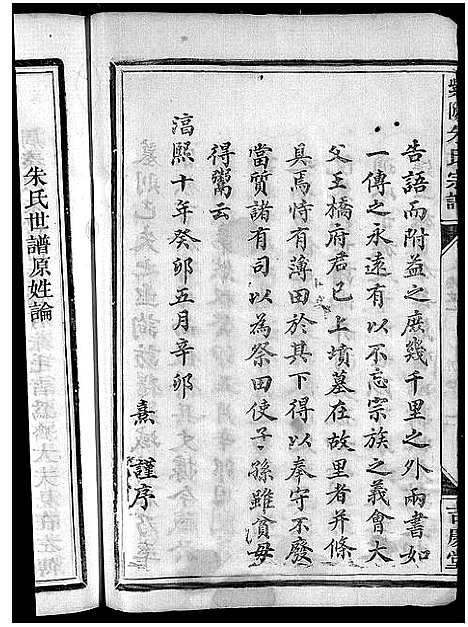 朱氏宗譜
告語而附益之庶幾千里之外兩書如
一傳之永遠有以不忘宗族之義會大
父王橋府君已上墳墓在故里者并條
具焉恃有薄田於其下得以奉守不廢
當質諸有司以為祭田使子孫雖貧毋
得鬻云
淳熙十年癸卯五月辛卯
熹謹序
朱氏世譜原姓論